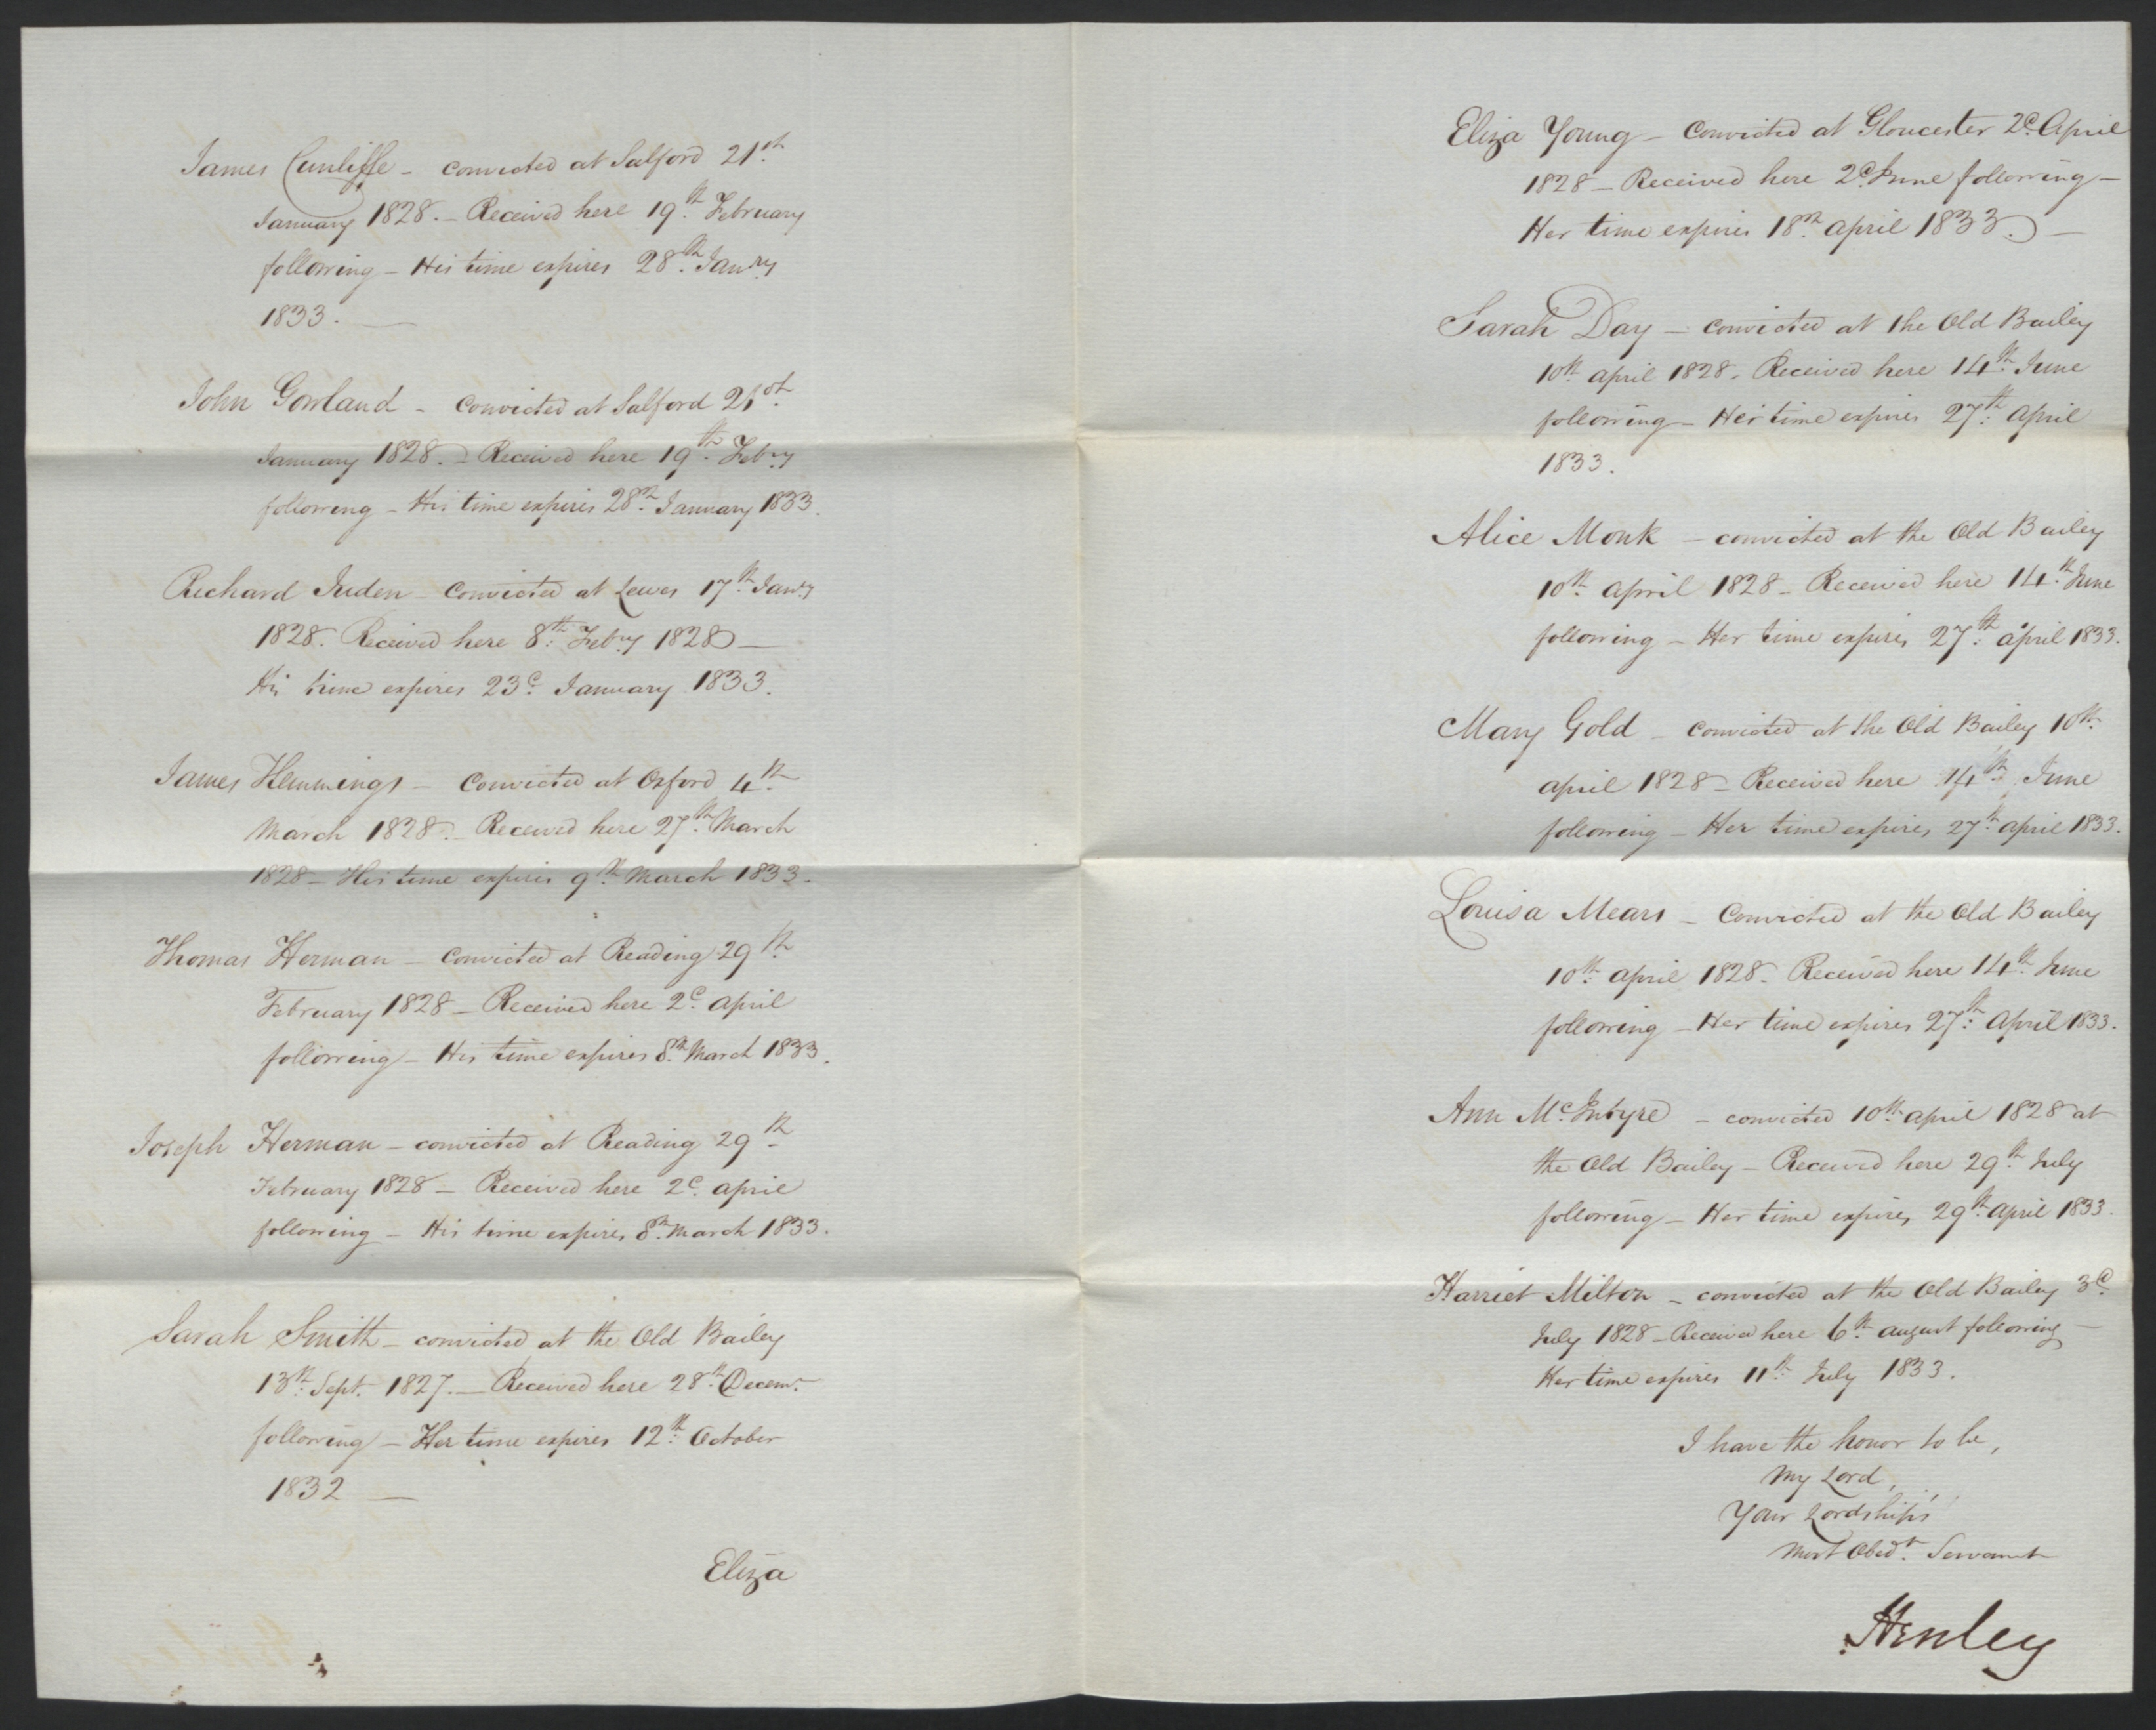 James Cunliffe - convicted at Salford 21st
January 1828. - Received here 19th February
following - His time expires 28th Janry
1833. —
John Gowland - Convicted at Salford 21st
January 1828. - Received here 19th Febry
following - His time expires 28th January 1833.
Richard Juden - Convicted at Lewes 17th Janry
1828. Received here 8th Febry 1828 —
His time expires 23d January 1833.
James Hemmings - Convicted at Oxford 4th
March 1828. - Received here 27th March
1828 - His time expires 9th March 1833.
Thomas Herman - Convicted at Reading 29th
February 1828 - Received here 2d April
following - His time expires 8th March 1833.
Joseph Herman - convicted at Reading 29th
February 1828 - Received here 2d April
following - His time expires 8th March 1833.
Sarah Smith - convicted at the Old Bailey
13th Sept. 1827. - Received here 28th Decemr
following - Her time expires 12th October
1832 —
Eliza
Eliza Young - Convicted at Gloucester 2d April
1828 - Received here 2d June following -
Her time expires 18th April 1833. —
Sarah Day - convicted at the Old Bailey
10th April 1828. Received here 14th June
following - Her time expires 27th April
1833.
Alice Monk - convicted at the Old Bailey
10th April 1828 - Received here 14th June
following - Her time expires 27th April 1833.
Mary Gold - Convicted at the Old Bailey 10th
April 1828 - Received here 14th June
following - Her time expires 27th April 1833.
Louisa Mears - Convicted at the Old Bailey
10th April 1828 - Received here 14th June
following - Her time expires 27th April 1833.
Ann McIntyre - convicted 10th April 1828 at
the Old Bailey - Received here 29th July
following - Her time expires 29th April 1833.
Harriet Milton - convicted at the Old Bailey 3d
July 1828 - Received here 6th August following -
Her time expires 11th July 1833.
I have the honor to be,
My Lord,
Your Lordship's
Most Obedt. Servant
Henley